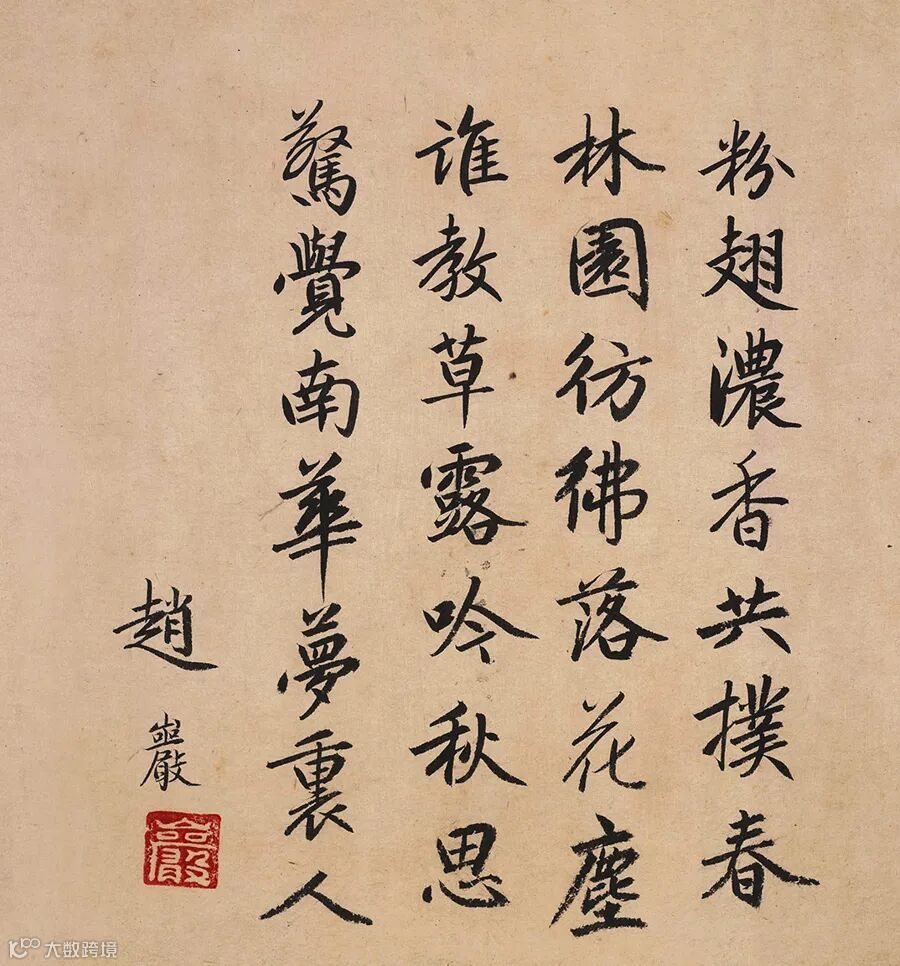 粉翅濃香共撲春
林園彷彿落花塵
誰教草露吟秋思
驚覺南華夢裏人
趙巖
大数跨境